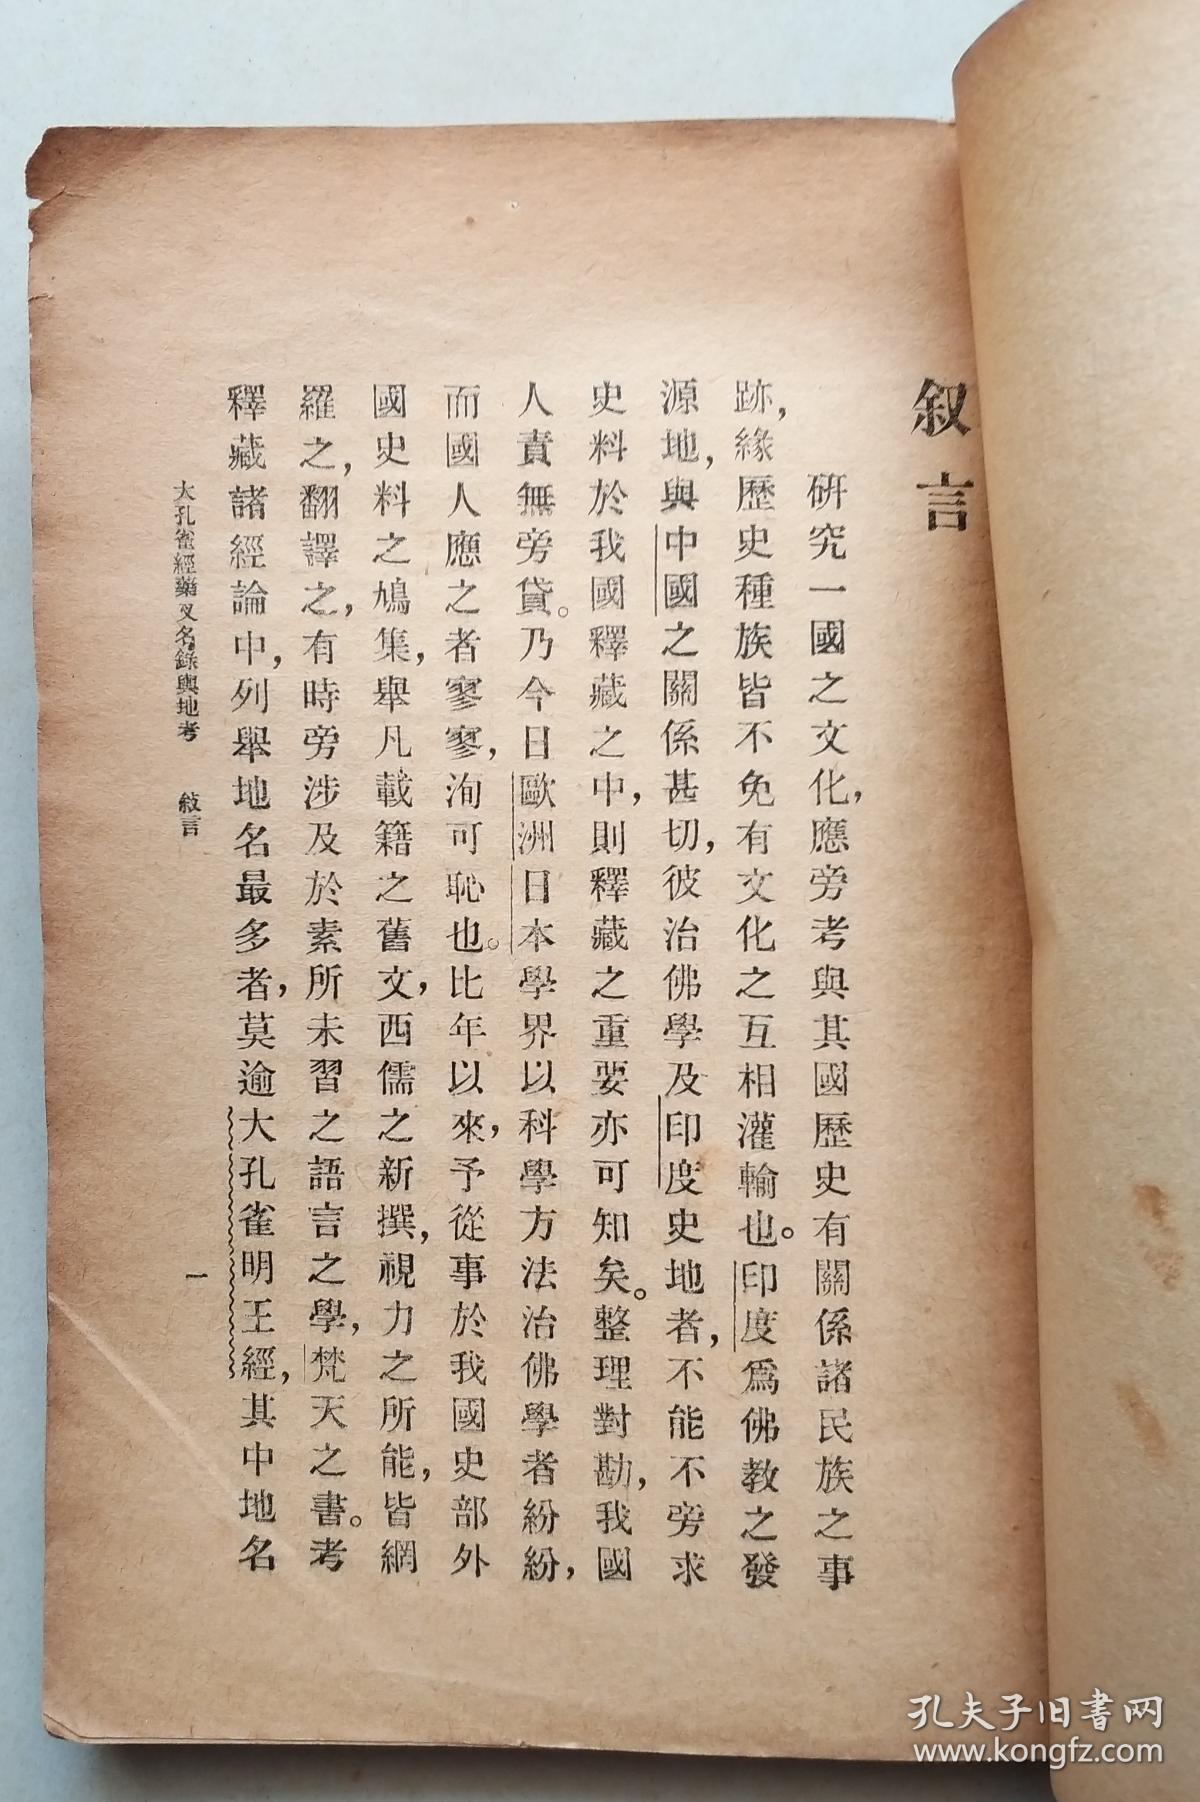 叙言
研究一國之文化，應旁考與其國歷史有關係諸民族之事
跡，緣歷史種族皆不免有文化之互相灌輸也。印度爲佛教之發
源地，與中國之關係甚切，彼治佛學及印度史地者，不能不旁求
史料於我國釋藏之中，則釋藏之重要亦可知矣。整理對勘，我國
人責無旁貸。乃今日歐洲日本學界以科學方法治佛學者紛紛，
而國人應之者寥寥，洵可恥也。比年以來，予從事於我國史部外
國史料之鳩集，舉凡載籍之舊文，西儒之新撰，視力之所能，皆網
羅之，翻譯之，有時旁涉及於素所未習之語言之學，梵天之書。考
釋藏諸經論中，列舉地名最多者，莫逾大孔雀明王經，其中地名
大孔雀經藥叉名錄輿地考　敍言
一
孔夫子旧书网
www.kongfz.com